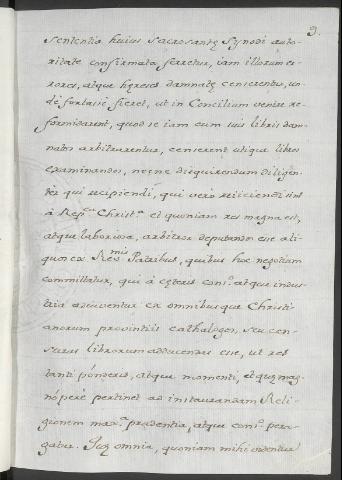 9.
sententia huius sacrosantę Synodi auto-
ritate confirmata ferretur, iam illorum er-
rores, atque hęreses damnatę censerentur, un-
de fortasse fieret, ut in Concilium venire re-
formidarent, quod se iam cum suis libris dam-
natos arbitrarentur, censerent utique libros
examinandos, necne disquirendum diligen-
ter qui recipiendi, qui vero reiiciendi sint
à Rep.ca Christ.a et quoniam res magna est,
atque laboriosa, arbitror deputandos esse ali-
quos ex Re.mis Patribus, quibus hoc negotium
committatur, qui à cęteris cons.o atque indus-
tria adiuventur ex omnibusque Christi-
anorum provintiis cathalogos, seu cen-
suras librorum adducendas esse, ut res
tanti põnderis, atque momenti, et quę mag-
nõpere pertinet ad instaurandam Reli-
gionem max.a prudentia, atque cons.o pera-
gatur. Quę omnia, quoniam mihi videntur